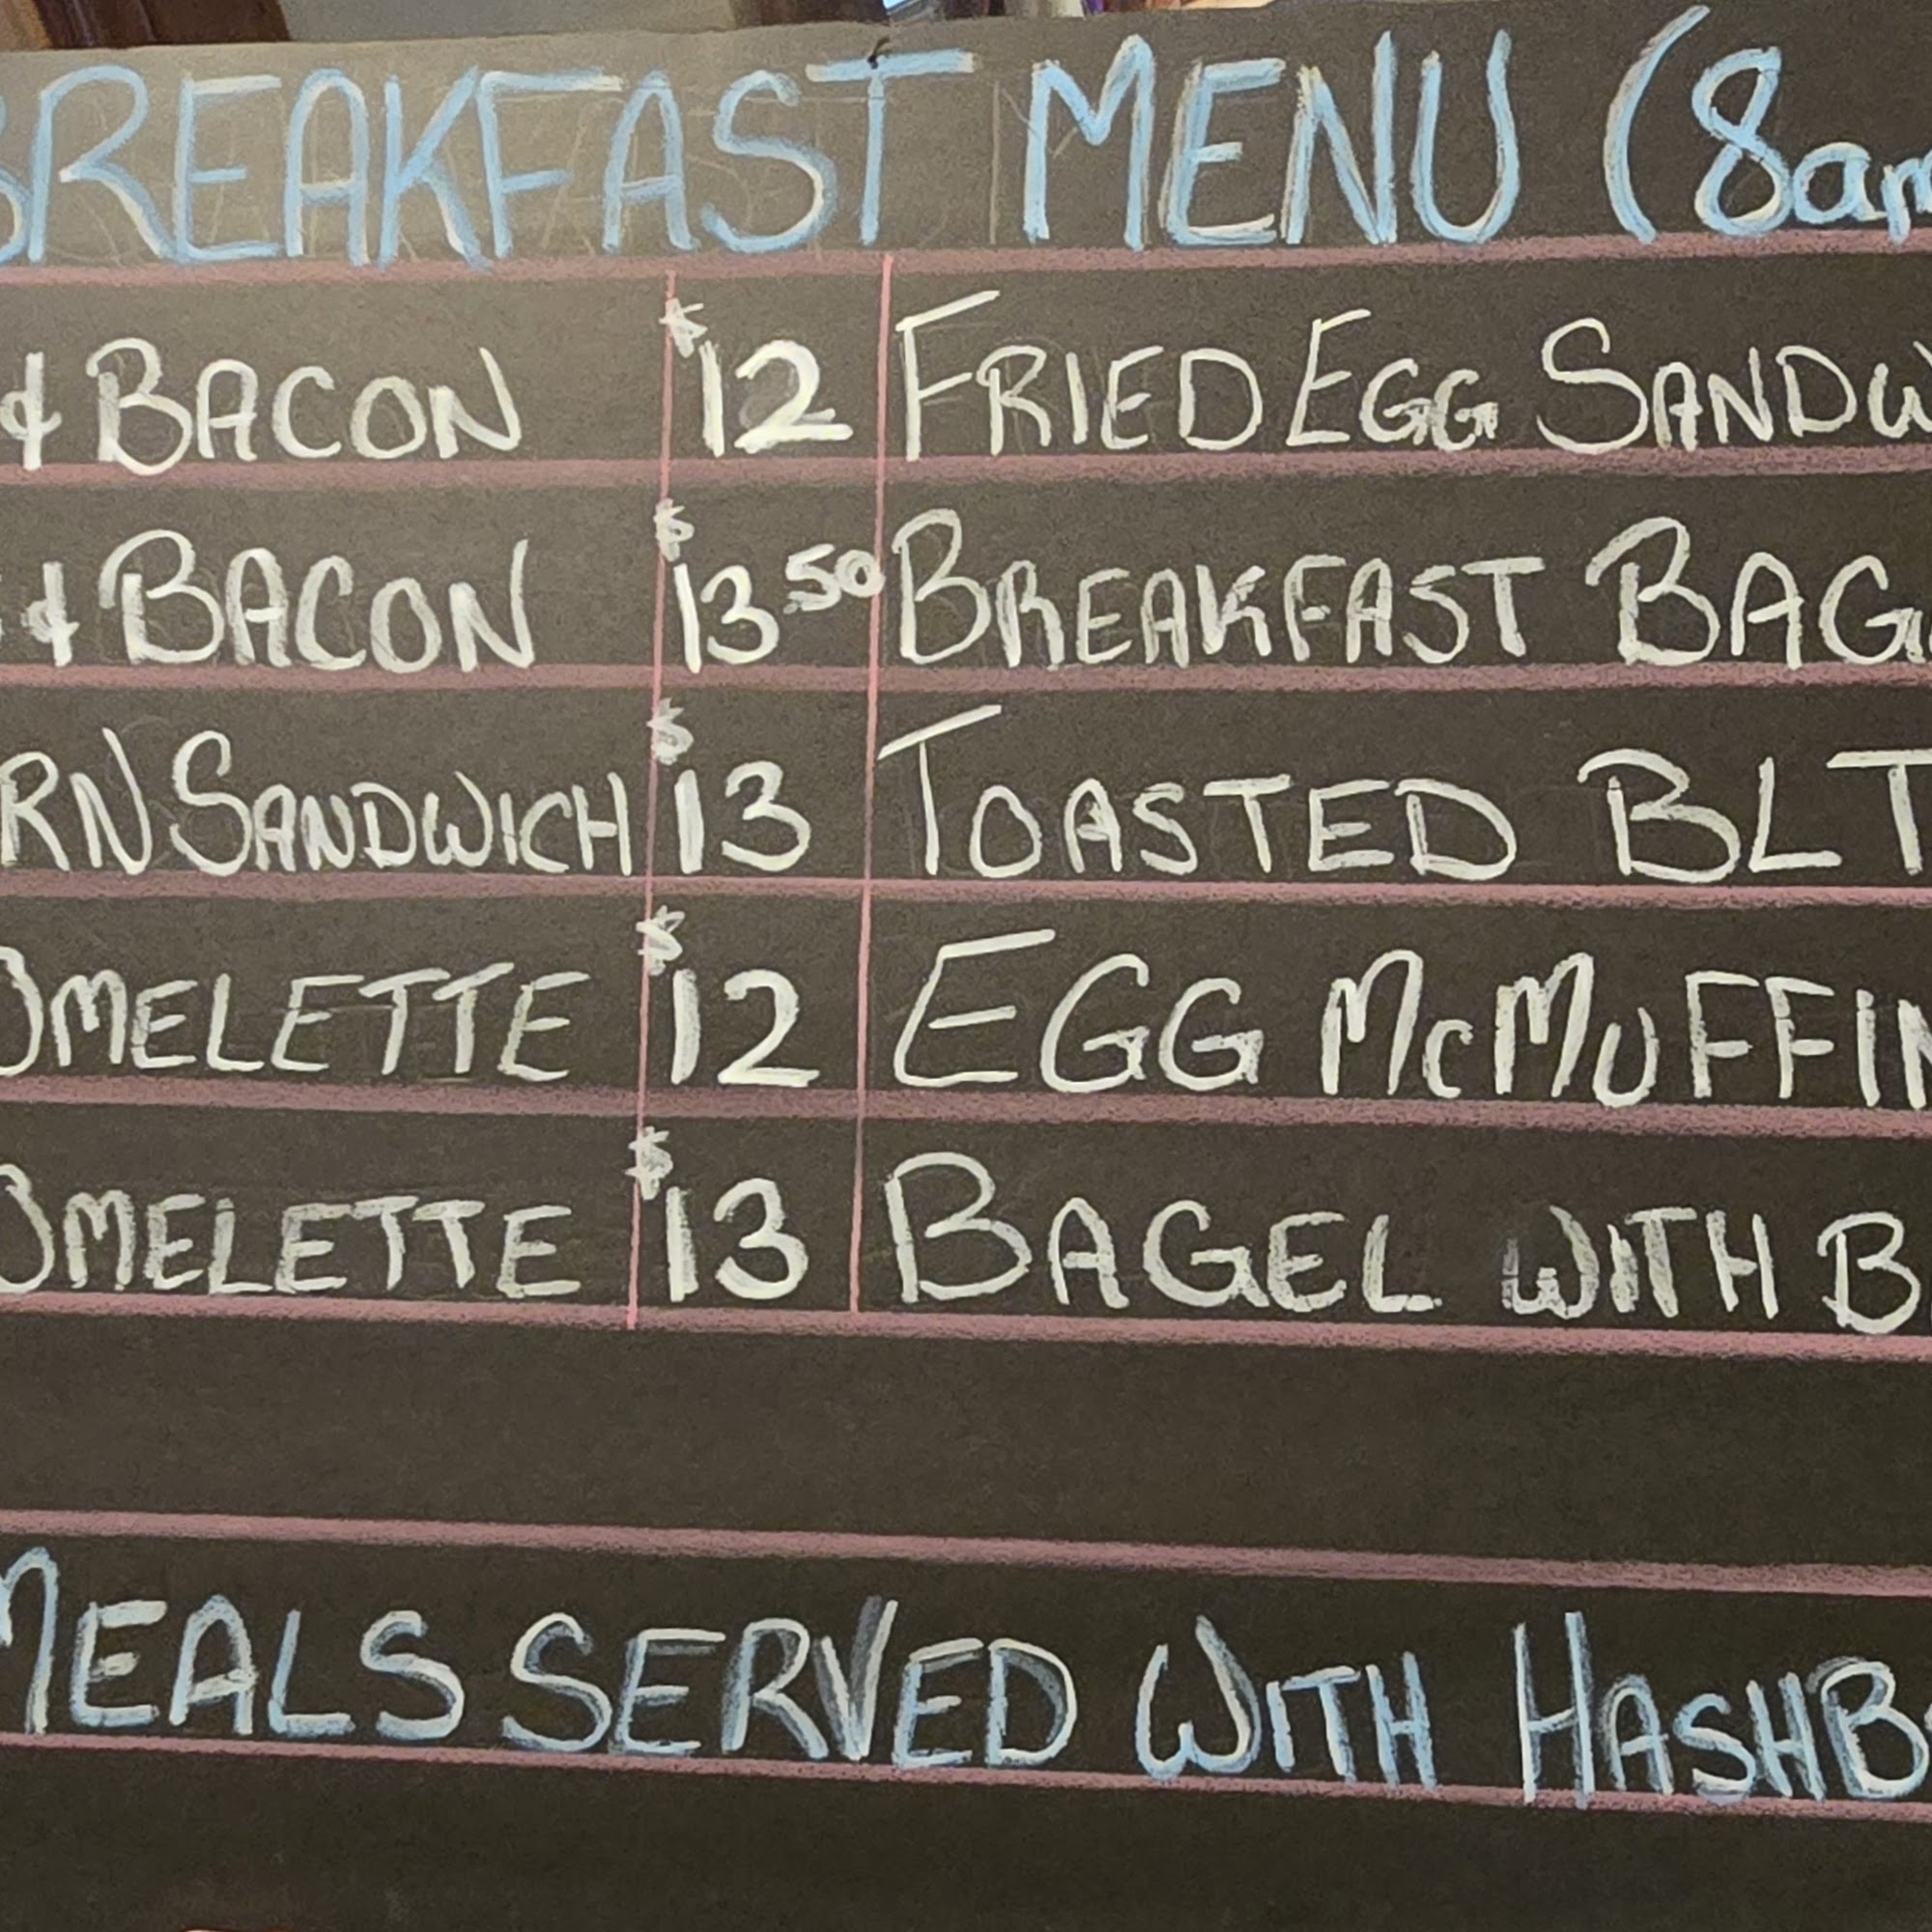 BREAKFAST MENU (8am
& BACON $12 FRIED EGG SANDW
& BACON $13.50 BREAKFAST BAG
RN SANDWICH $13 TOASTED BLT
OMELETTE $12 EGG MCMUFFIN
OMELETTE $13 BAGEL WITH B
MEALS SERVED WITH HASHB